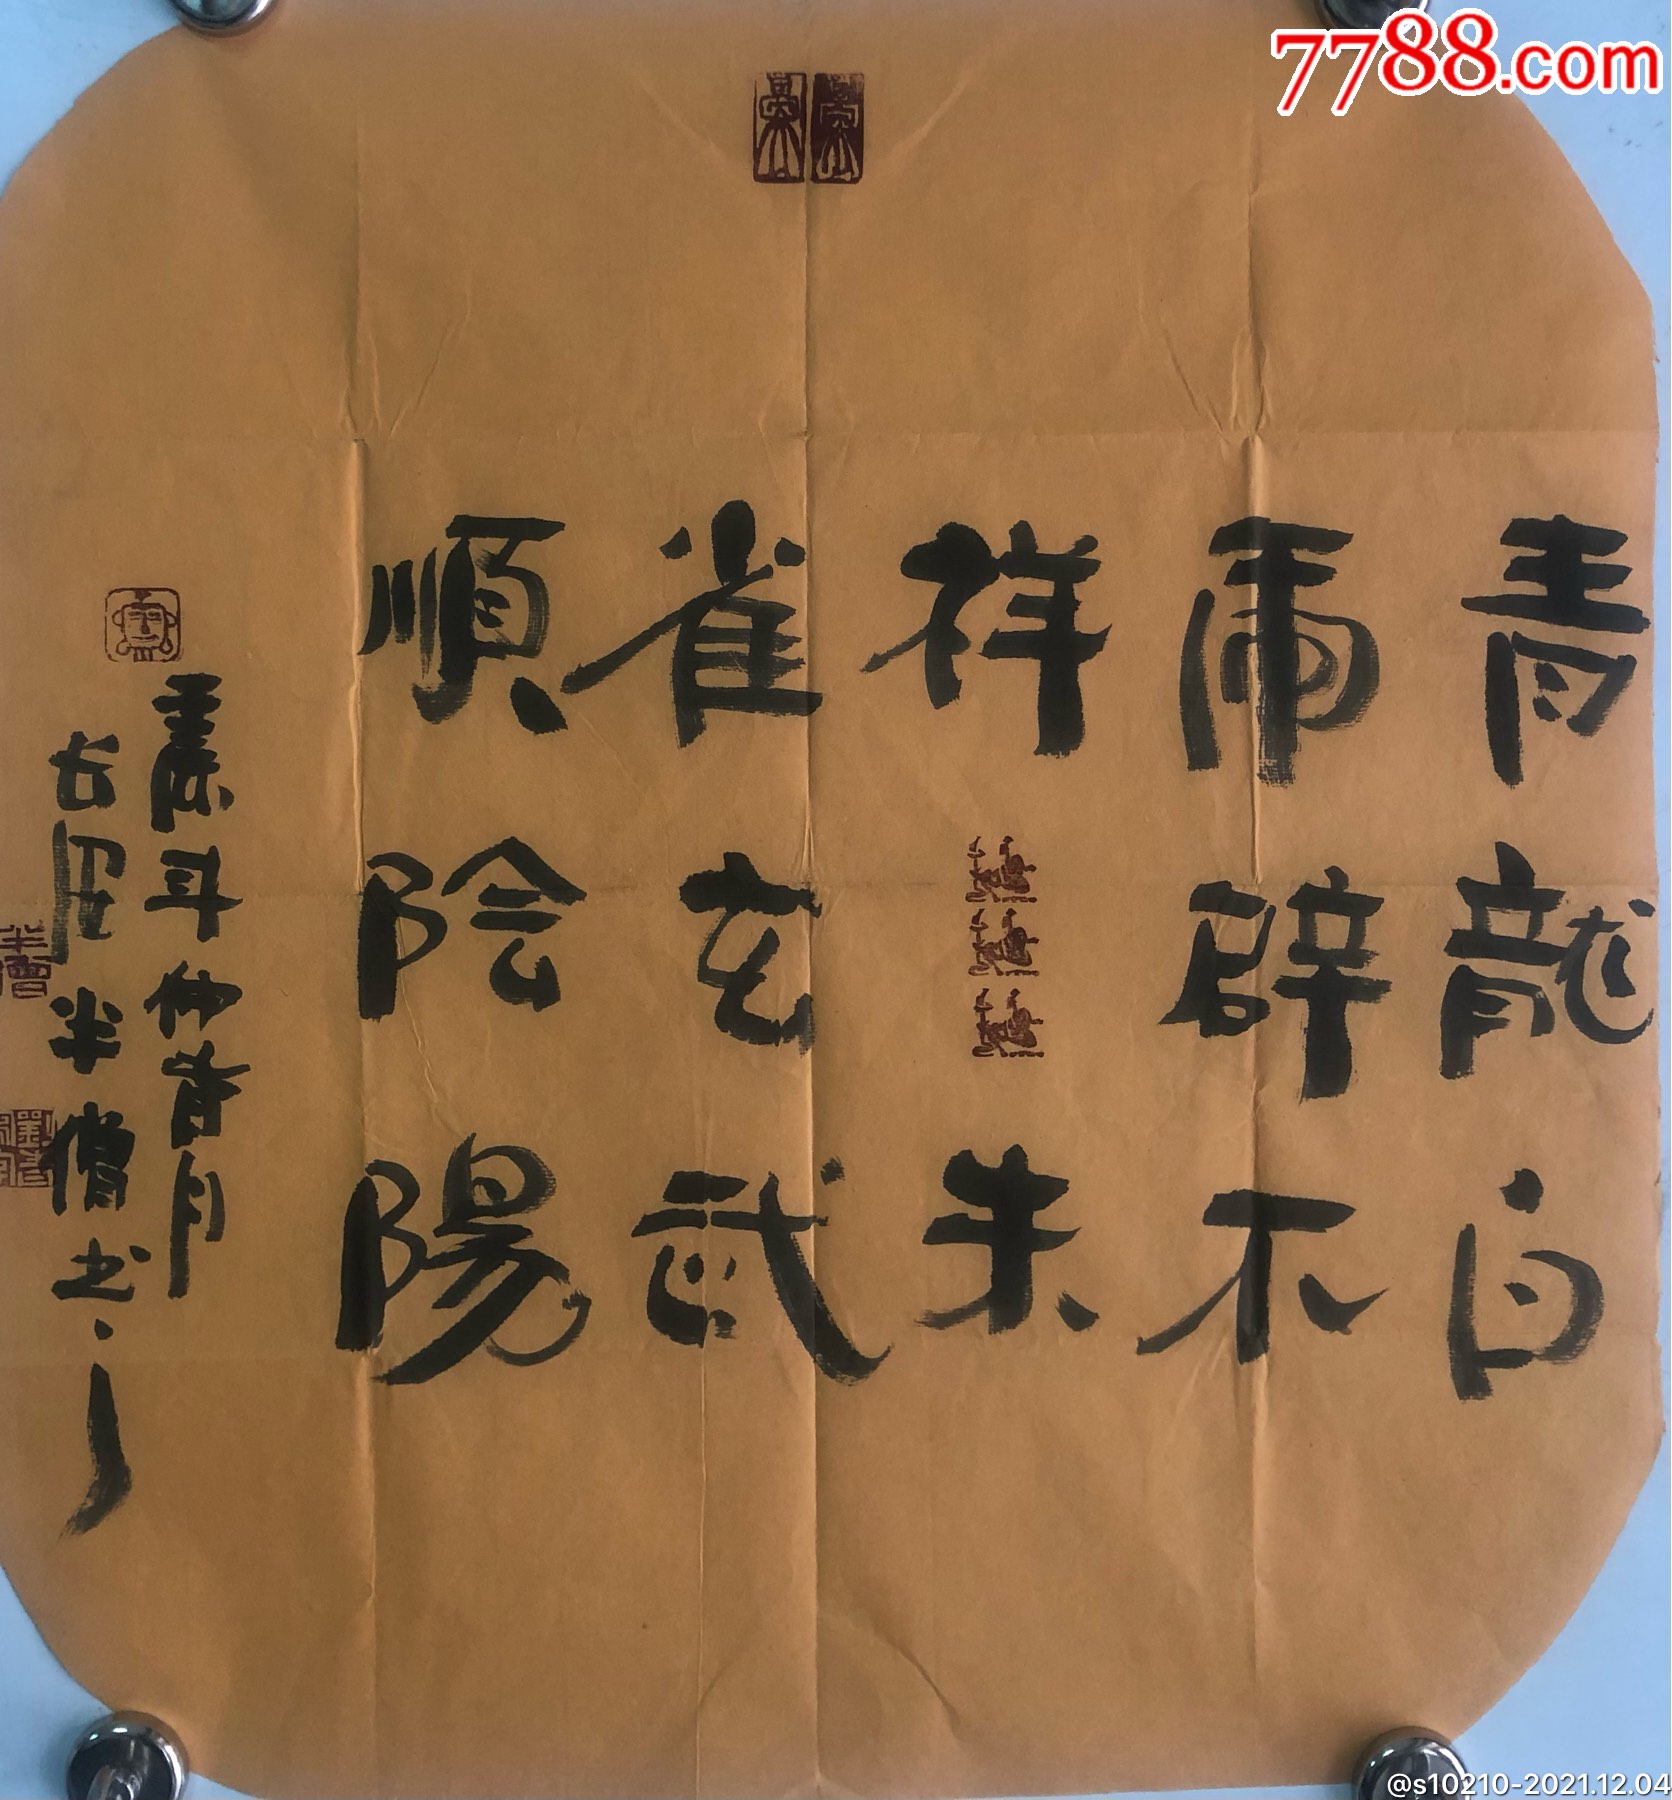 青龍白
虎辟不
祥 朱
雀玄武
順陰陽
斗仲春月
長安半僧书
半僧
7788.com
@s10210-2021.12.04